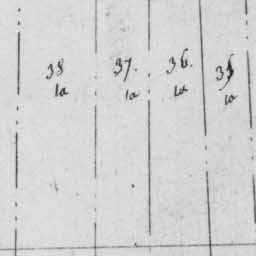 38 37. 36. 35
1a 1a 1a 1a